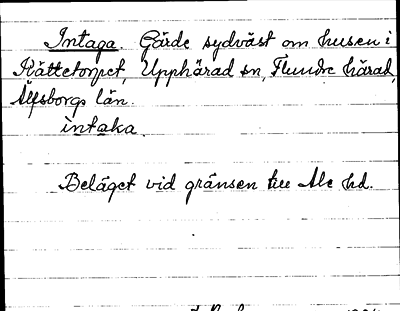 Intaga. Gärde sydväst om husen i
Rättetorpet, Upphärad sn, Flundre härad,
Älfsborgs län.
intaka.
Beläget vid gränsen till Ale hd.